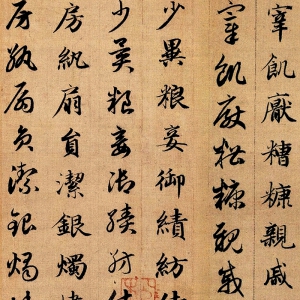 宰飢厭糟糠親戚
宰飢厭糟糠親戚
少異粮妾御績紡
少異粮妾御績紡
房紈扇員潔銀燭
房紈扇員潔銀燭